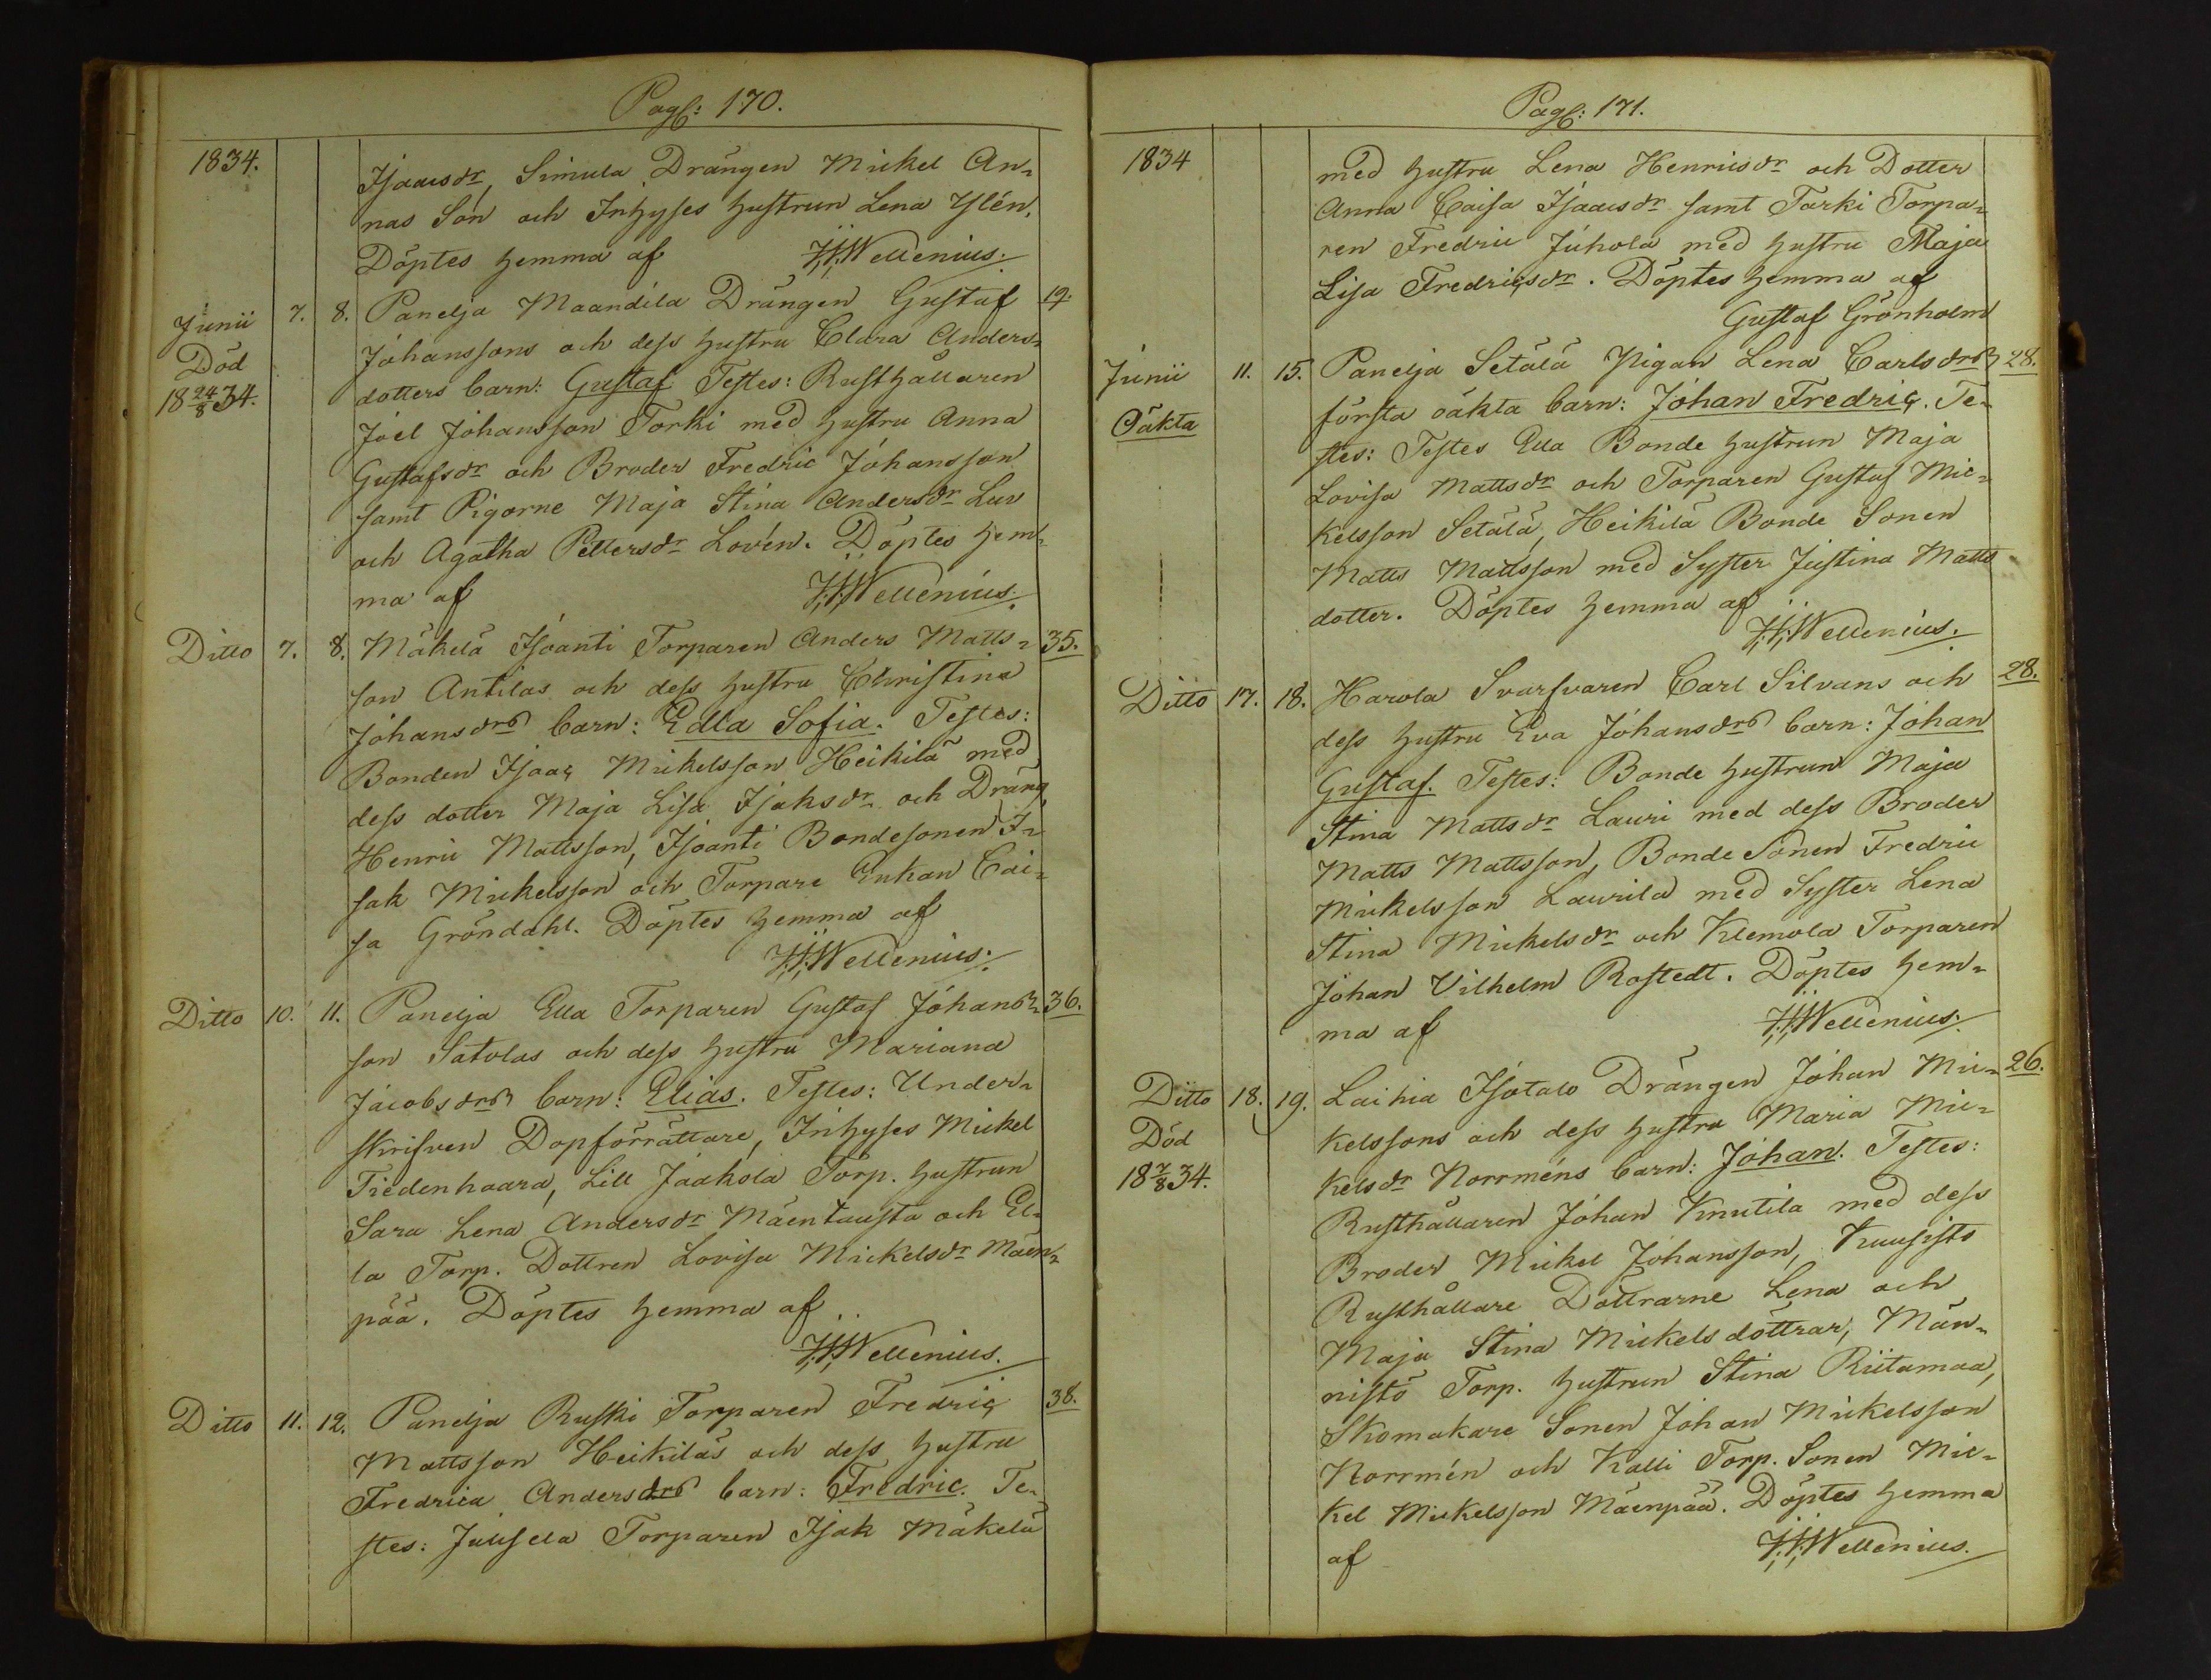 Pag: 170.
1834.
Isaacsdr, Simula Drängen Mickel An-
nas Son och Inhyses hustrun Lena Ylén.
Döptes hemma af J.J. Wellenius.
Junii 7. 8. Panelja Maandila Drängen Gustaf 19.
Död
18 24/8 34.
Johanssons och dess hustru Clara Anders-
dotters barn: Gustaf Testes: Rusthållaren
Joel Johansson Torki med hustru Anna
Gustafsdr och Broder Fredric Johansson
samt Pigorne Maja Stina Andersdr Luv
och Agatha Pettersdr Lovén. Döptes hem-
ma af J.J. Wellenius.
Ditto 7. 8. Mäkelä Isoanti Torparen Anders Matts- 35.
son Antilas och dess hustru Christina
Johansdrs barn: Edla Sofia. Testes:
Bonden Isaac Mickelsson Heikilä med
dess dotter Maja Lisa Isaksdr och Dräng
Henric Mattsson, Isoanti Bondesonen I-
sak Mickelsson och Torpare Enkan Cai-
sa Gröndahl. Döptes hemma af
J.J. Wellenius.
Ditto 10. 11. Panelja Ella Torparen Gustaf Johans- 36.
son Satolas och dess hustru Mariana
Jacobsdrs barn: Elias. Testes: Under-
skrifven Dopförrättare, Inhyses Mickel
Tiedenhaara, Lill Jaakola Torp. hustrun
Sara Lena Andersdr Mäentausta och El-
la Torp. Dottren Lovisa Mickelsdr Mäen-
pää. Döptes hemma af
J.J. Wellenius.
Ditto 11. 12. Panelja Ruski Torparen Fredric 38.
Mattsson Heikiläs och dess hustru
Fredrica Andersdrs barn: Fredric. Te-
stes: Torparen Isak Mäkelä
Pag: 171.
1834
med hustru Lena Henricsdr och Dotter
Anna Caisa Isaacsdr samt Torki Torpa-
ren Fredric Juhola med hustru Maja
Lisa Fredricsdr. Döptes hemma af
Gustaf Grönholm
Junii 11. 15. Panelja Setälä Pigan Lena Carlsdrs 28.
Oäkta
första oäkta barn: Johan Fredric. Te-
stes: Testes Ella Bonde hustrun Maja
Lovisa Mattsdr och Torparen Gustaf Mic-
kelsson Setälä, Heikilä Bonde Sonen
Matts Mattsson med Syster Justina Matts
dotter. Döptes hemma af
J.J. Wellenius.
Ditto 17. 18. Harola Svarfvaren Carl Silvans och 28.
dess hustru Eva Johansdrs barn: Johan
Gustaf. Testes: Bonde hustrun Maja
Stina Mattsdr Lauri med dess Broder
Matts Mattsson, Bonde Sonen Fredric
Mickelsson Laurila med Syster Lena
Stina Mickelsdr och Klemola Torparen
Johan Vilhelm Rostedt. Döptes hem-
ma af J.J. Wellenius.
Ditto 18. 19. Laihia Isotalo Drängen Johan Mic- 26.
Död
18 7/8 34.
kelssons och dess hustru Maria Mic-
kelsdr Norrméns barn: Johan. Testes:
Rusthållaren Johan Knutila med dess
Broder Mickel Johansson, Kuusisto
Rusthållare Döttrarne Lena och
Maja Stina Mickelsdöttrar, Män-
nistö Torp. hustrun Stina Riitamaa,
Skomakare Sonen Johan Mickelsson
Norrmén och Kalli Torp. Sonen Mic-
kel Mickelsson Mäenpää. Döptes hemma
af J.J. Wellenius.